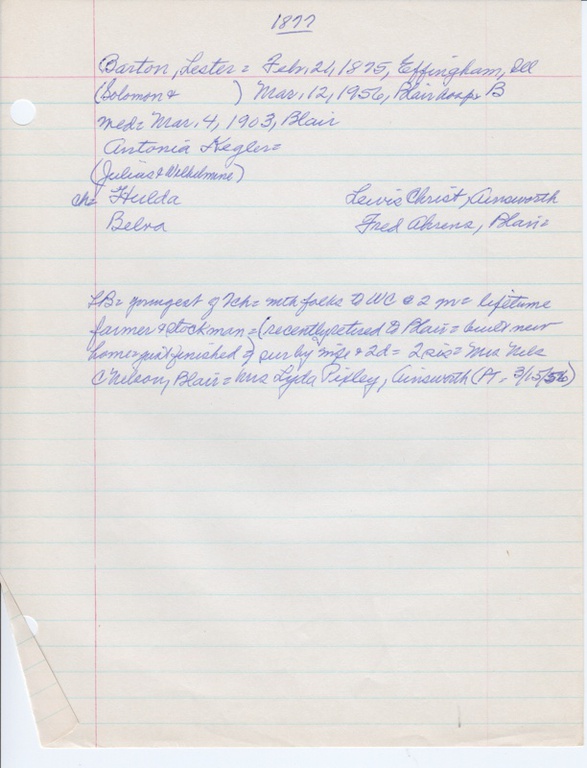 1877
Barton, Lester = Feb. 21, 1875, Effingham, Ill
(Solomon & ) Mar. 12, 1956, Blair hosp. B
med = Mar. 4, 1903, Blair
Antonia Kegler =
(Julius & Wilhelmine)
ch = Hulda Lewis Christ, Ainsworth
Belva Fred Ahrens, Blair =
LB = youngest of 7ch = mth folks to WC @ 2 m = lifetime
farmer & stockman = (recently retired to Blair = built new
home = just finished =) sur by wife & 2d = 2 sis = Mrs Nels
C Nelson, Blair = Mrs Lyda Pixley, Ainsworth (PT - 3/15/56)